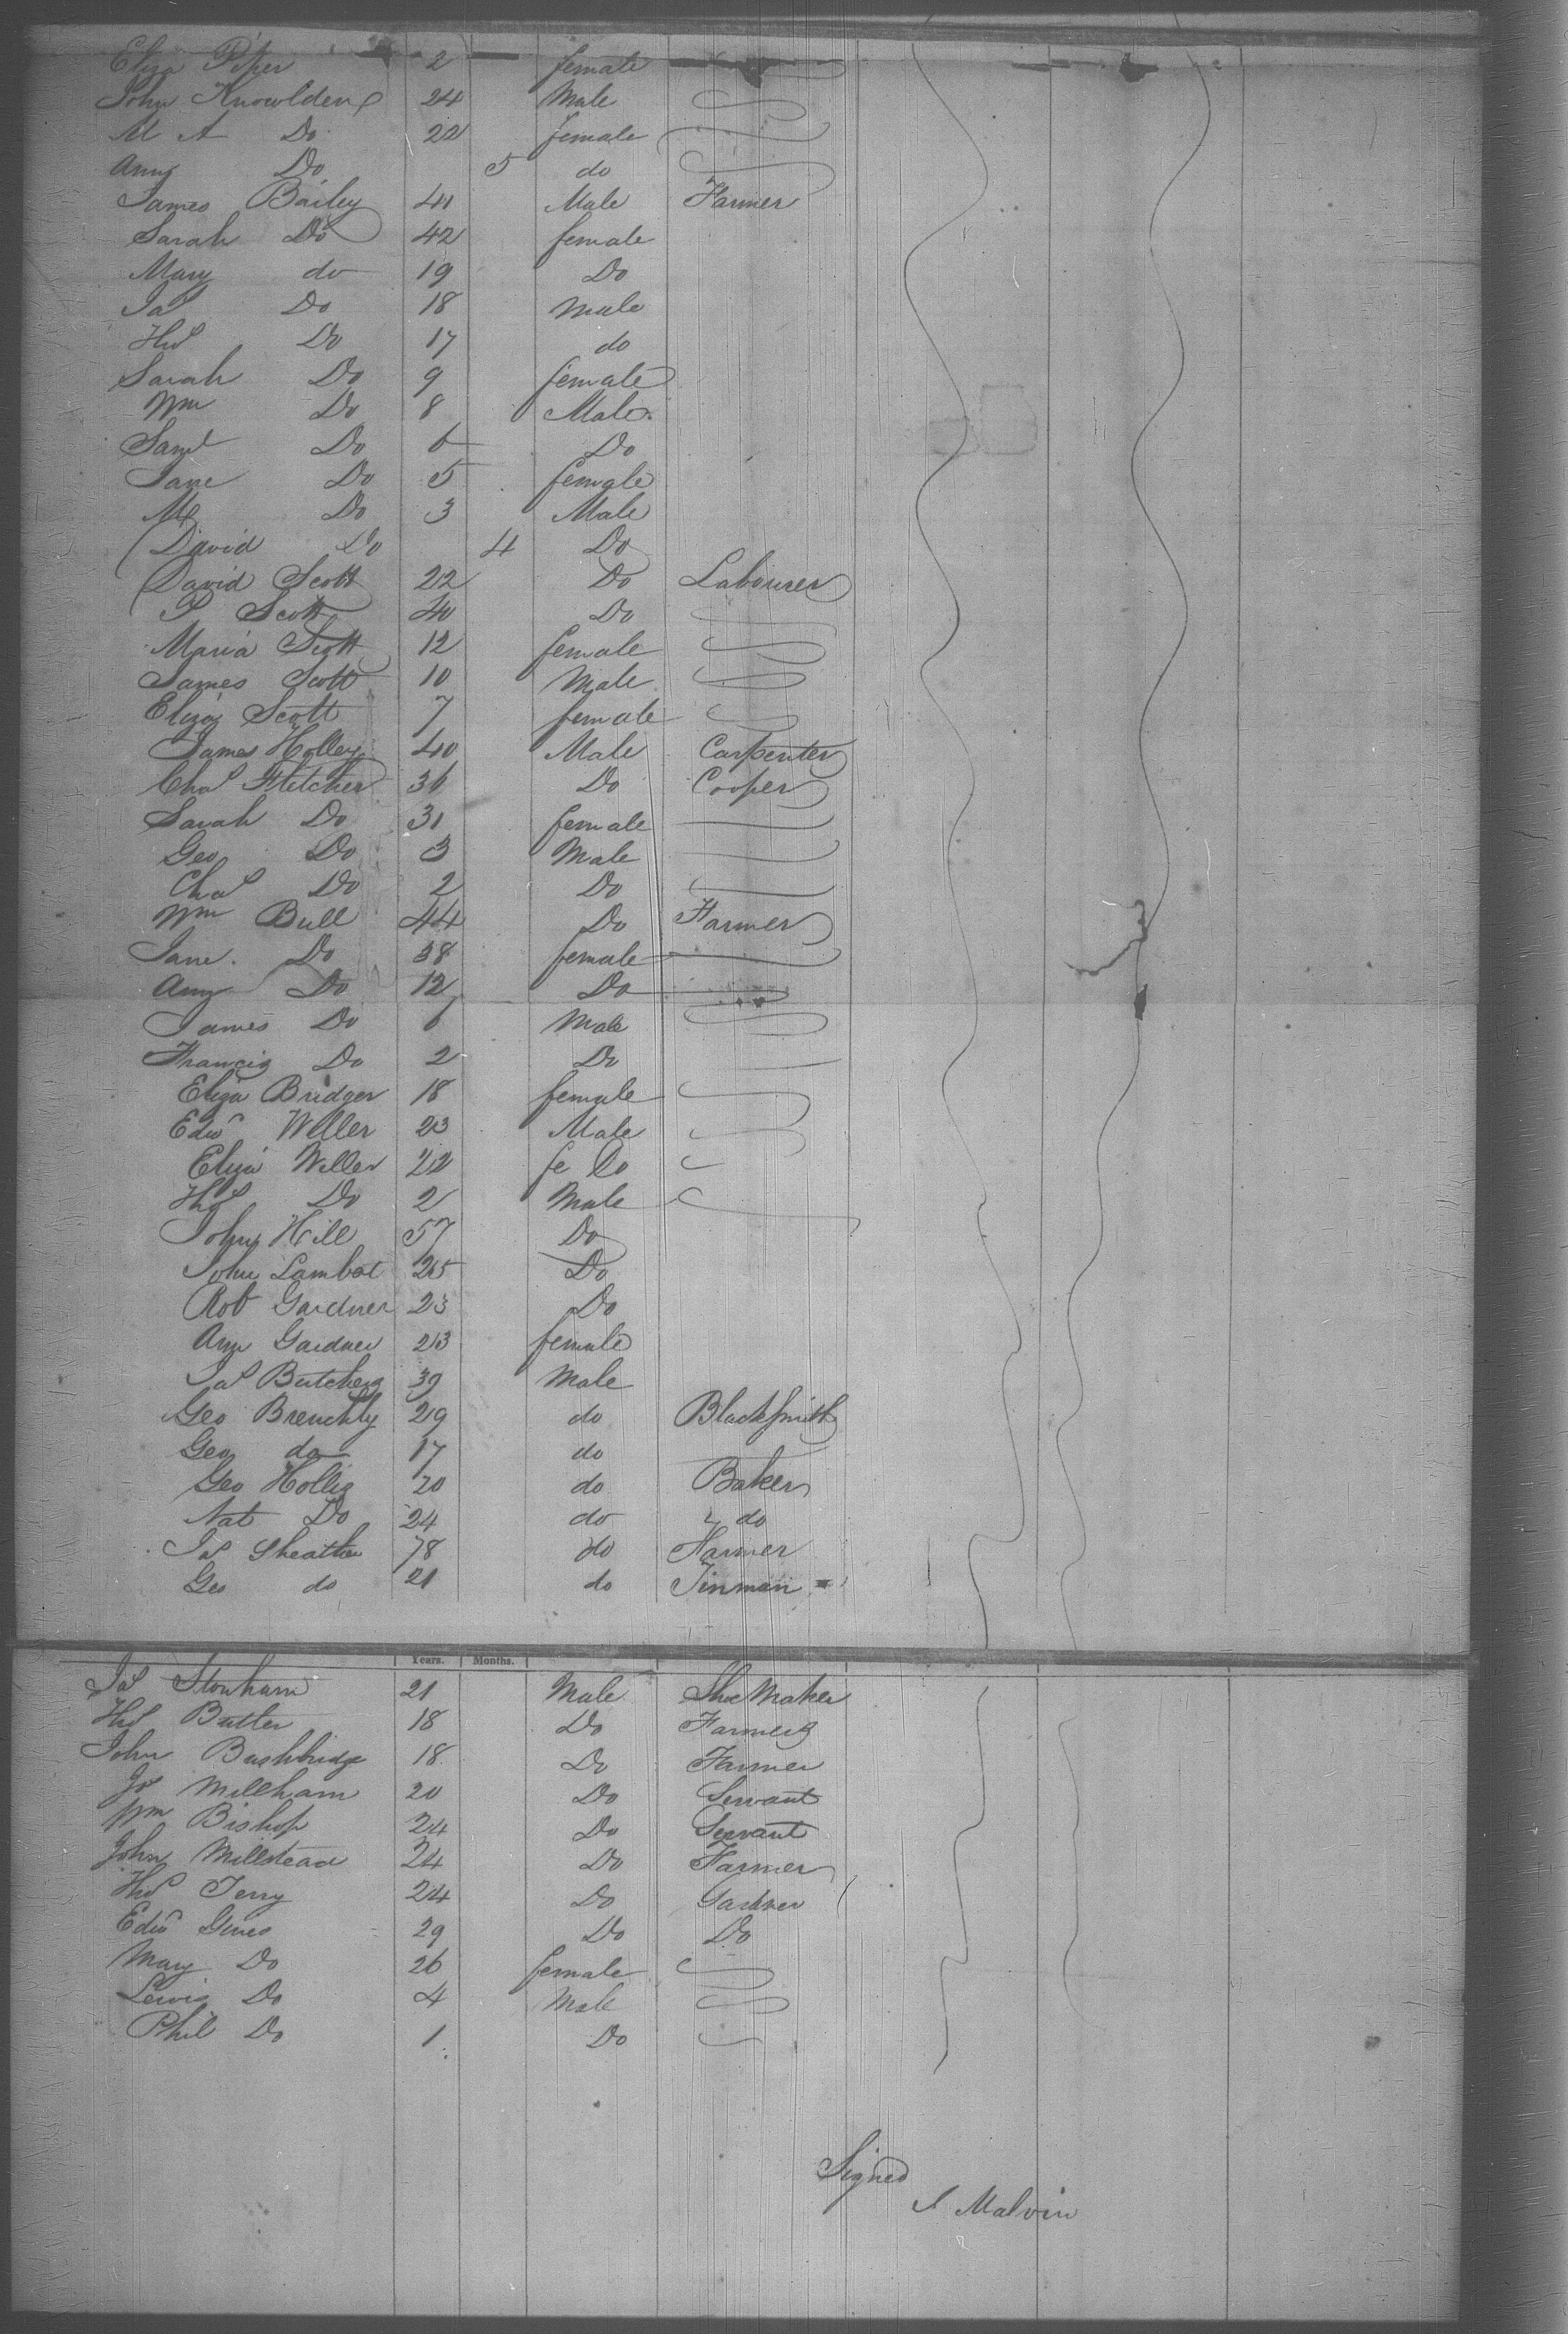 Eliza Piper 2 female
John Knowlden 24 Male
M A Do 22 female
Ann Do 5 do
James Bailey 41 Male Farmer
Sarah Do 42 female
Mary do 19 Do
Jas Do 18 Male
Thos Do 17 do
Sarah Do 9 female
Wm Do 8 Male
Saml Do 6 Do
Jane Do 5 female
Do 3 Male
David Do 4 Do
David Scott 22 Do Labourer
P Scott 40 Do
Maria Scott 12 female
James Scott 10 Male
Eliza Scott 7 female
James Holley 40 Male Carpenter
Chas Fletcher 36 Do Cooper
Sarah Do 31 female
Geo Do 3 Male
Chas Do 2 Do
Wm Bull 44 Do Farmer
Jane Do 38 female
Amy Do 12 Do
James Do 6 Male
Francis Do 2 Do
Eliza Bridger 18 female
Edwd Weller 23 Male
Eliza Weller 22 fe Do
Thos Do 2 Male
John Hill 57 Do
John Lambot 25 Do
Rob Gardner 23 Do
Ann Gardner 23 female
Jas Butcher 39 Male
Geo Brenchly 29 do Blacksmith
Geo do 17 do
Geo Hollis 20 do Baker
Nat Do 24 do do
Jas Sheather 78 do Farmer
Geo do 21 do Tinman
Years. Months.
Jas Stonham 21 Male Shoe Maker
Thos Butler 18 Do Farmer
John Bushbridge 18 Do Farmer
Jos Millham 20 Do Servant
Wm Bishop 24 Do Servant
John Millstead 24 Do Farmer
Thos Terry 24 Do Gardner
Edwd Gines 29 Do Do
Mary Do 26 female
Lewis Do 4 Male
Phil Do 1 Do
Signed
J Malvin